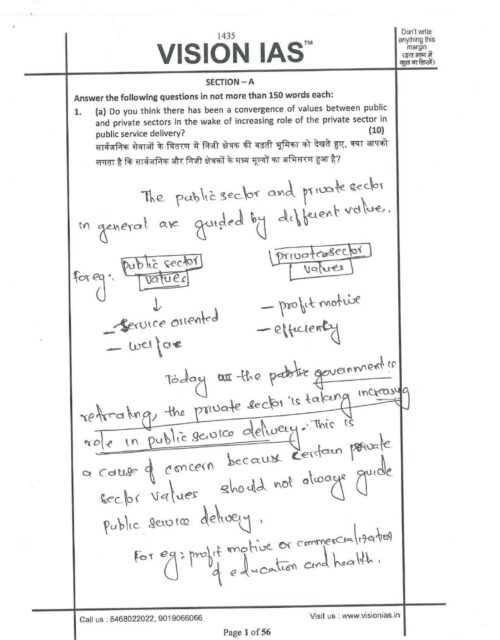 1435
VISION IAS™
Don't write
anything this
margin
(इस भाग में
कुछ ना लिखें)
SECTION – A
Answer the following questions in not more than 150 words each:
1. (a) Do you think there has been a convergence of values between public
and private sectors in the wake of increasing role of the private sector in
public service delivery? (10)
सार्वजनिक सेवाओं के वितरण में निजी क्षेत्रक की बढ़ती भूमिका को देखते हुए, क्या आपको
लगता है कि सार्वजनिक और निजी क्षेत्रकों के मध्य मूल्यों का अभिसरण हुआ है?
The public sector and private sector
in general are guided by different value.
For eg:
Public sector
values
Private sector
values
– Service oriented
– welfare
– profit motive
– efficiency
Today as the public government is
retreating, the private sector is taking increasing
role in public service delivery. This is
a cause of concern because certain private
sector values should not always guide
public service delivery.
For eg: profit motive or commercialization
of education and health.
Call us : 8468022022, 9019066066
Visit us : www.visionias.in
Page 1 of 56